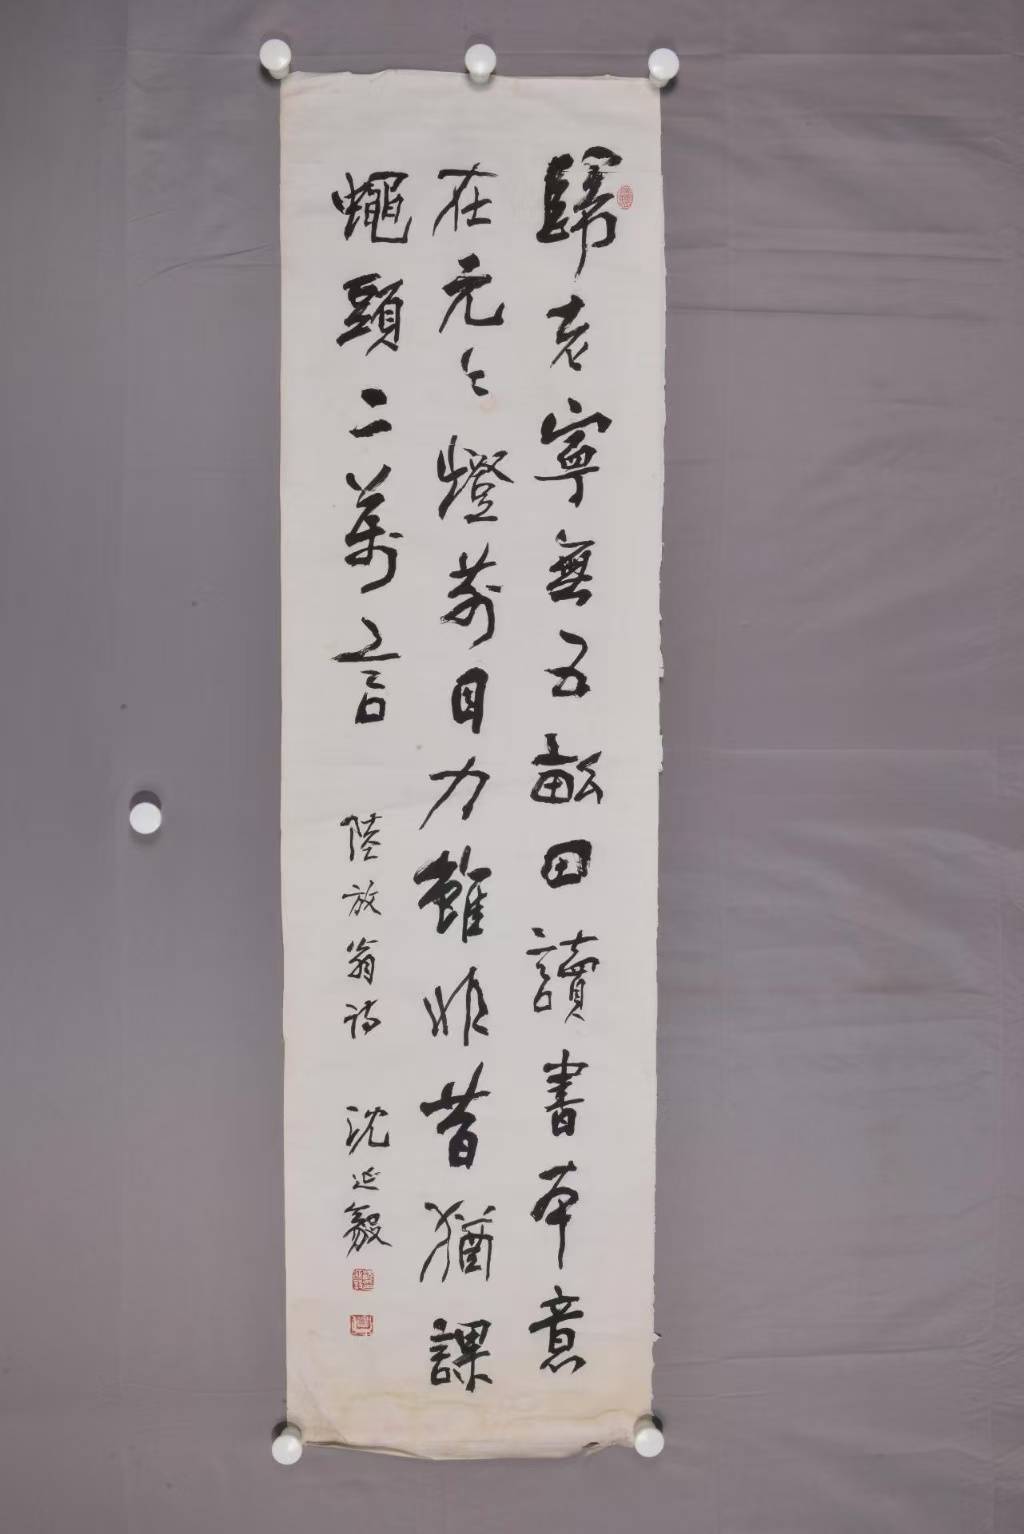 歸老寧無五畝田讀書本意
在元〻燈前目力雖非昔猶課
蠅頭二萬言 陸放翁詩 沈延毅